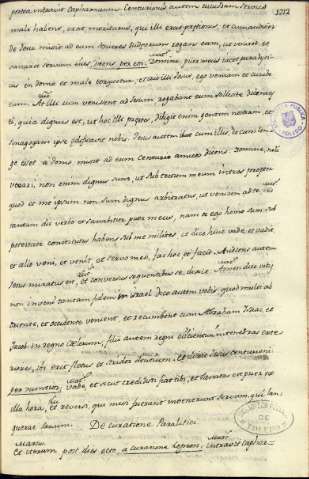 postea intravit Capharnaum Centurionis autem cuiusdam servus
male habens, erat moriturus, qui illi erat pretiosus, et cum audisset
de Jesu misit ad eum seniores Judeorum rogans eum, ut veniret et
sanaret servum eius, dicens Domine puer meus iacet paraliti-
cus in domo et male torquetur, et ait illi Jesus, ego veniam et curabo
eum. At illi cum venissent ad Jesum rogabant eum sollicite dicentes
ei, quia dignus est, ut hoc illi prestes, diligit enim gentem nostram et
sinagogam ipse edificavit nobis. Jesus autem ibat cum illis et cum non lon-
ge esset a domo misit ad eum Centurio amicos dicens Domine, noli
vexari, non enim dignus sum, ut sub tectum meum intres propter
quod et me ipsum non sum dignus arbitratus, ut venirem ad te, sed
tantum dic verbo et sanabitur puer meus, nam et ego homo sum sub
potestate constitutus habens sub me milites, et dico huic vade et vadit,
et alio veni, et venit, et servo meo, fac hoc et facit. Audiens autem
Jesus miratus est, et conversus sequentibus se, dixit Amen dico vobis
non inveni tantam fidem in Israel Dico autem vobis quod multi ab
oriente, et occidente venient, et recumbent cum Abraham Isaac et
Jacob in regno Celorum, filii autem regni eicientur in tenebras exte-
riores, ibi erit fletus et stridor dentium. Et dixit Jesus centurioni
vade, et sicut credidisti fiat tibi, et sanatus est puer ex
illa hora, et reversi, qui missi fuerant invenerunt servum, qui lan-
guerat sanum. De curatione Paralitici
Marcus
Et iterum post dies octo, a curatione leprosi, intravit Caphar-